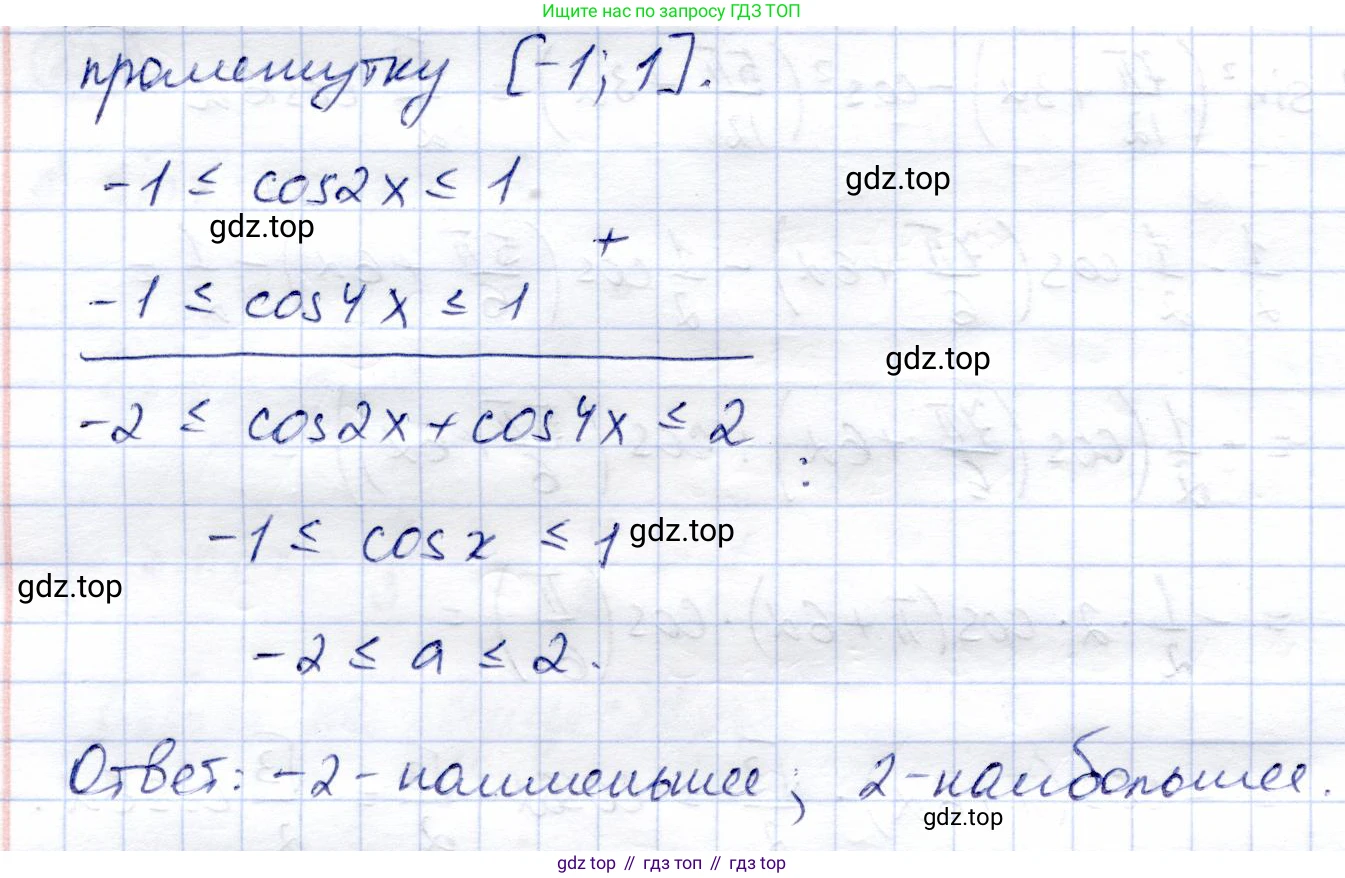 Ищите нас по запросу ГДЗ ТОП
промежутку [-1; 1].
-1 ≤ cos2x ≤ 1
gdz.top
gdz.top
+
-1 ≤ cos4x ≤ 1
gdz.top
-2 ≤ cos2x + cos4x ≤ 2
:
-1 ≤ cosx ≤ 1
gdz.top
gdz.top
-2 ≤ a ≤ 2.
Ответ: -2 - наименьшее; 2 - наибольшее.
gdz.top
gdz top // гдз топ // gdz.top